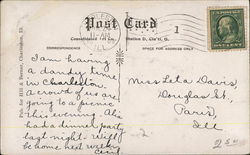 Post Card
CORRESPONDENCE
SPACE FOR ADDRESS ONLY
1
I am having
a dandy time
in Charleston.
A crowd of us are
going to a picnic
this evening. Also
had a dinner party
last night. Will
be home next week
Miss Leta Davis,
Douglas St.,
Paris,
Ill